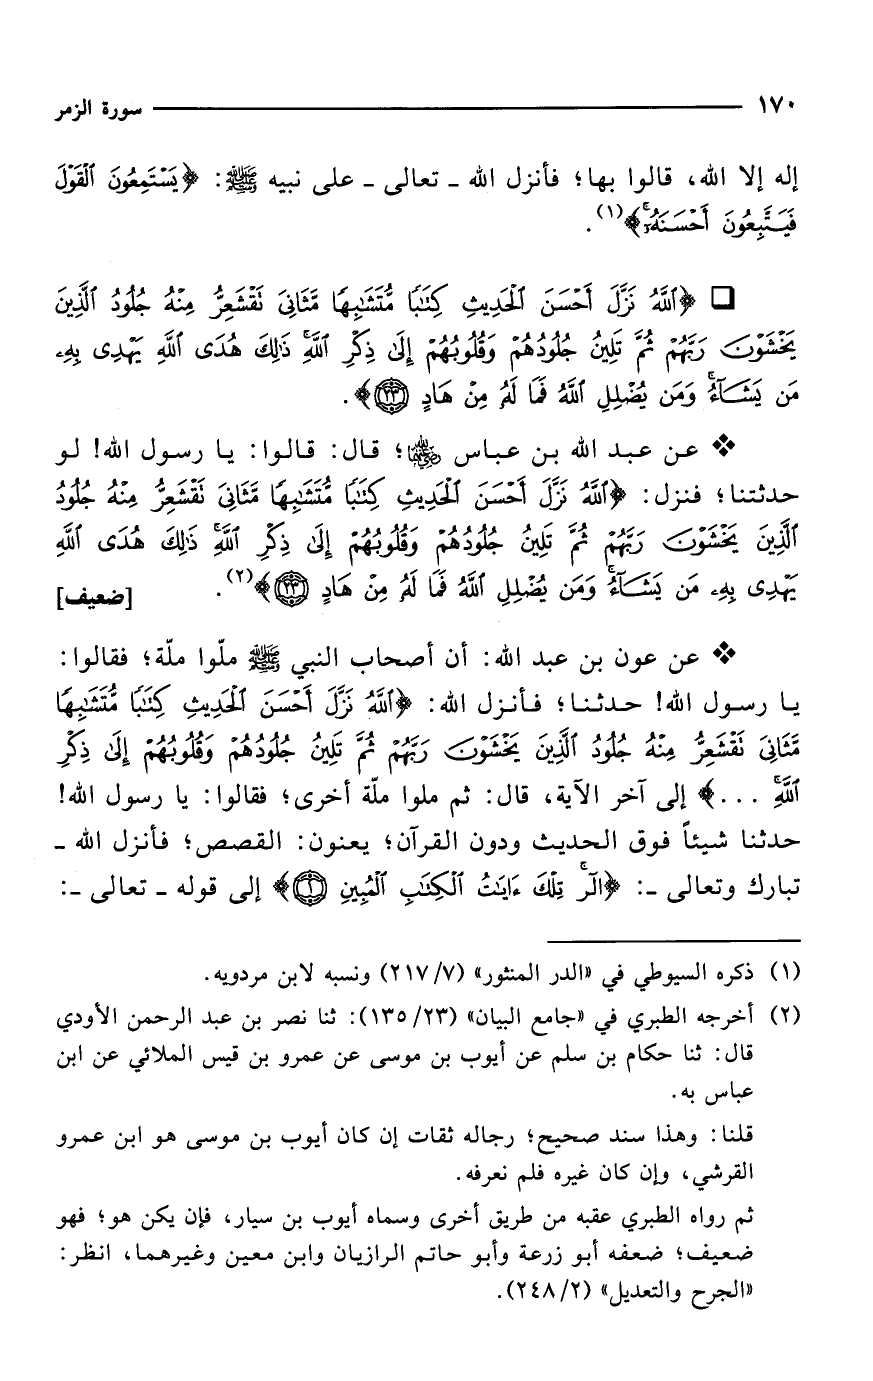 ١٧٠ سورة الزمر
إله إلا الله، قالوا بها؛ فأنزل الله ـ تعالى ـ على نبيه ﷺ: ﴿يَسْتَمِعُونَ ٱلْقَوْلَ
فَيَتَّبِعُونَ أَحْسَنَهُۥٓۚ﴾(١).
❑ ﴿ٱللَّهُ نَزَّلَ أَحْسَنَ ٱلْحَدِيثِ كِتَٰبًا مُّتَشَٰبِهًا مَّثَانِىَ نَقْشَعِرُّ مِنْهُ جُلُودُ ٱلَّذِينَ
يَخْشَوْنَ رَبَّهُمْ ثُمَّ تَلِينُ جُلُودُهُمْ وَقُلُوبُهُمْ إِلَىٰ ذِكْرِ ٱللَّهِۚ ذَٰلِكَ هُدَى ٱللَّهِ يَهْدِى بِهِۦ
مَن يَشَآءُۚ وَمَن يُضْلِلِ ٱللَّهُ فَمَا لَهُۥ مِنْ هَادٍ ﴿٢٣﴾﴾.
❖ عن عبد الله بن عباس رضي الله عنهما؛ قال: قالوا: يا رسول الله! لو
حدثتنا؛ فنزل: ﴿ٱللَّهُ نَزَّلَ أَحْسَنَ ٱلْحَدِيثِ كِتَٰبًا مُّتَشَٰبِهًا مَّثَانِىَ نَقْشَعِرُّ مِنْهُ جُلُودُ
ٱلَّذِينَ يَخْشَوْنَ رَبَّهُمْ ثُمَّ تَلِينُ جُلُودُهُمْ وَقُلُوبُهُمْ إِلَىٰ ذِكْرِ ٱللَّهِۚ ذَٰلِكَ هُدَى ٱللَّهِ
يَهْدِى بِهِۦ مَن يَشَآءُۚ وَمَن يُضْلِلِ ٱللَّهُ فَمَا لَهُۥ مِنْ هَادٍ ﴿٢٣﴾﴾(٢). [ضعيف]
❖ عن عون بن عبد الله: أن أصحاب النبي ﷺ ملّوا ملّة؛ فقالوا:
يا رسول الله! حدثنا؛ فأنزل الله: ﴿ٱللَّهُ نَزَّلَ أَحْسَنَ ٱلْحَدِيثِ كِتَٰبًا مُّتَشَٰبِهًا
مَّثَانِىَ نَقْشَعِرُّ مِنْهُ جُلُودُ ٱلَّذِينَ يَخْشَوْنَ رَبَّهُمْ ثُمَّ تَلِينُ جُلُودُهُمْ وَقُلُوبُهُمْ إِلَىٰ ذِكْرِ
ٱللَّهِۚ ...﴾ إلى آخر الآية، قال: ثم ملوا ملّة أخرى؛ فقالوا: يا رسول الله!
حدثنا شيئاً فوق الحديث ودون القرآن؛ يعنون: القصص؛ فأنزل الله ـ
تبارك وتعالى ـ: ﴿الٓرۚ تِلْكَ ءَايَٰتُ ٱلْكِتَٰبِ ٱلْمُبِينِ ﴿١﴾﴾ إلى قوله ـ تعالى ـ:
(١) ذكره السيوطي في «الدر المنثور» (٧/ ٢١٧) ونسبه لابن مردويه.
(٢) أخرجه الطبري في «جامع البيان» (٢٣/ ١٣٥): ثنا نصر بن عبد الرحمن الأودي
قال: ثنا حكام بن سلم عن أيوب بن موسى عن عمرو بن قيس الملائي عن ابن
عباس به.
قلنا: وهذا سند صحيح؛ رجاله ثقات إن كان أيوب بن موسى هو ابن عمرو
القرشي، وإن كان غيره فلم نعرفه.
ثم رواه الطبري عقبه من طريق أخرى وسماه أيوب بن سيار، فإن يكن هو؛ فهو
ضعيف؛ ضعفه أبو زرعة وأبو حاتم الرازيان وابن معين وغيرهما، انظر:
«الجرح والتعديل» (٢/ ٢٤٨).